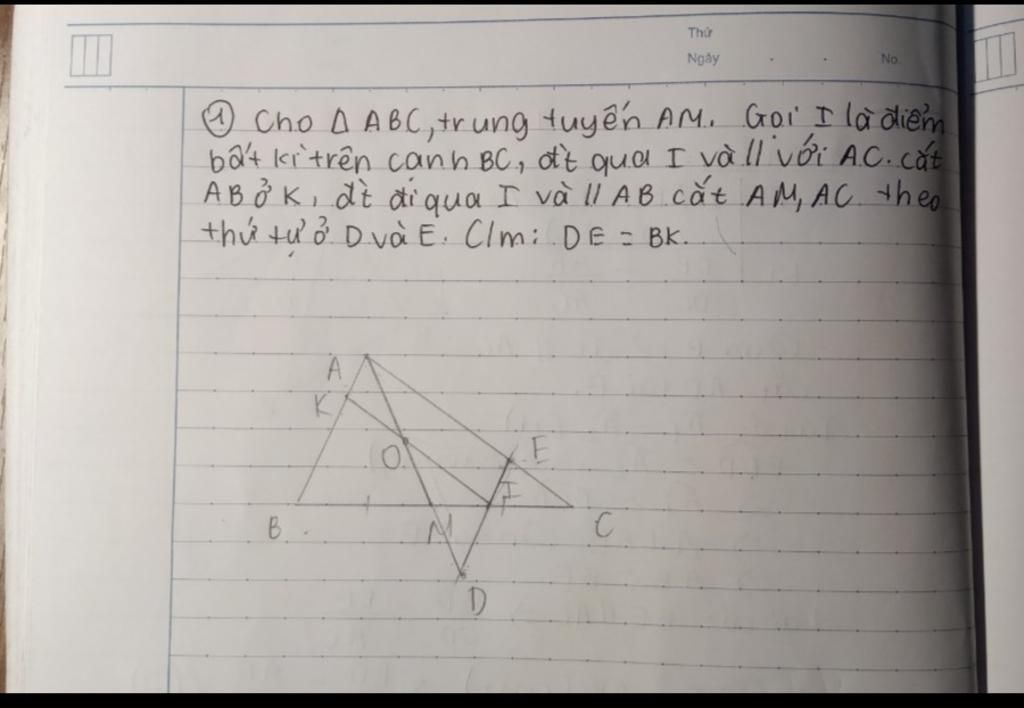 Thứ
Ngày . . No.
① Cho Δ ABC, trung tuyến AM. Gọi I là điểm
bất kì trên cạnh BC, đt qua I và // với AC. cắt
AB ở K, đt đi qua I và // AB cắt AM, AC theo
thứ tự ở D và E. C/m: DE = BK.
A
K
O
E
I
B
M
C
D